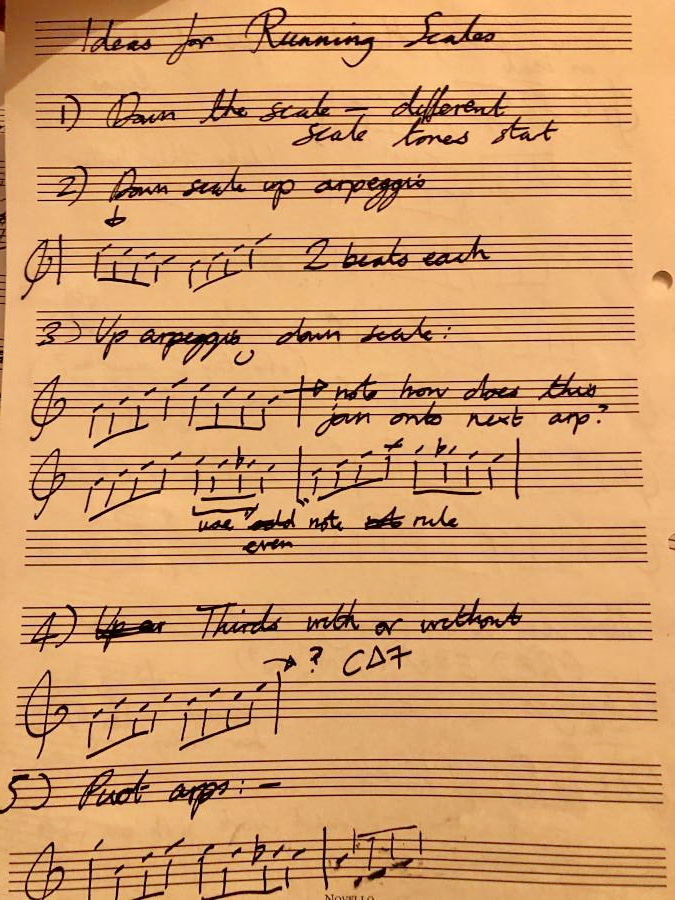 Ideas for Running Scales
1) Down the scale – different
scale tones start
2) Down scale up arpeggio
2 beats each
3) Up arpeggio, down scale:
note how does this
join onto next arp?
use "odd" note not rule
even
4) Up ar Thirds with or without
→ ? C∆7
5) Pivot arps: –
NOVELLO